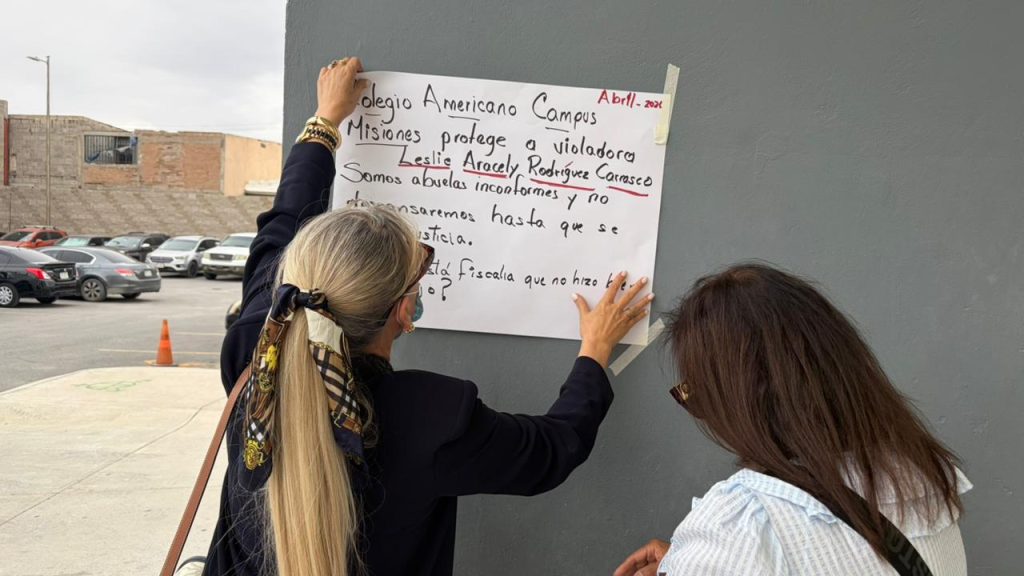 olegio Americano Campus
Abril-2026
Misiones protege a violadora
Leslie Aracely Rodríguez Carrasco
Somos abuelas inconformes y no
descansaremos hasta que se
usticia.
está fiscalia que no hizo
o?